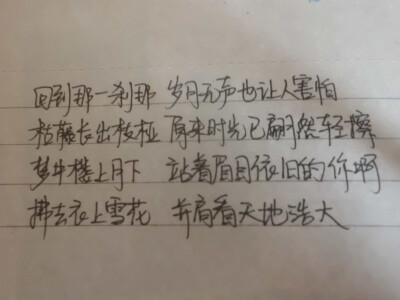 回到那一刹那 岁月无声也让人害怕
枯藤长出枝桠 原来时光已翩然轻擦
梦中楼上月下 站着眉目依旧的你啊
拂去衣上雪花 并肩看天地浩大